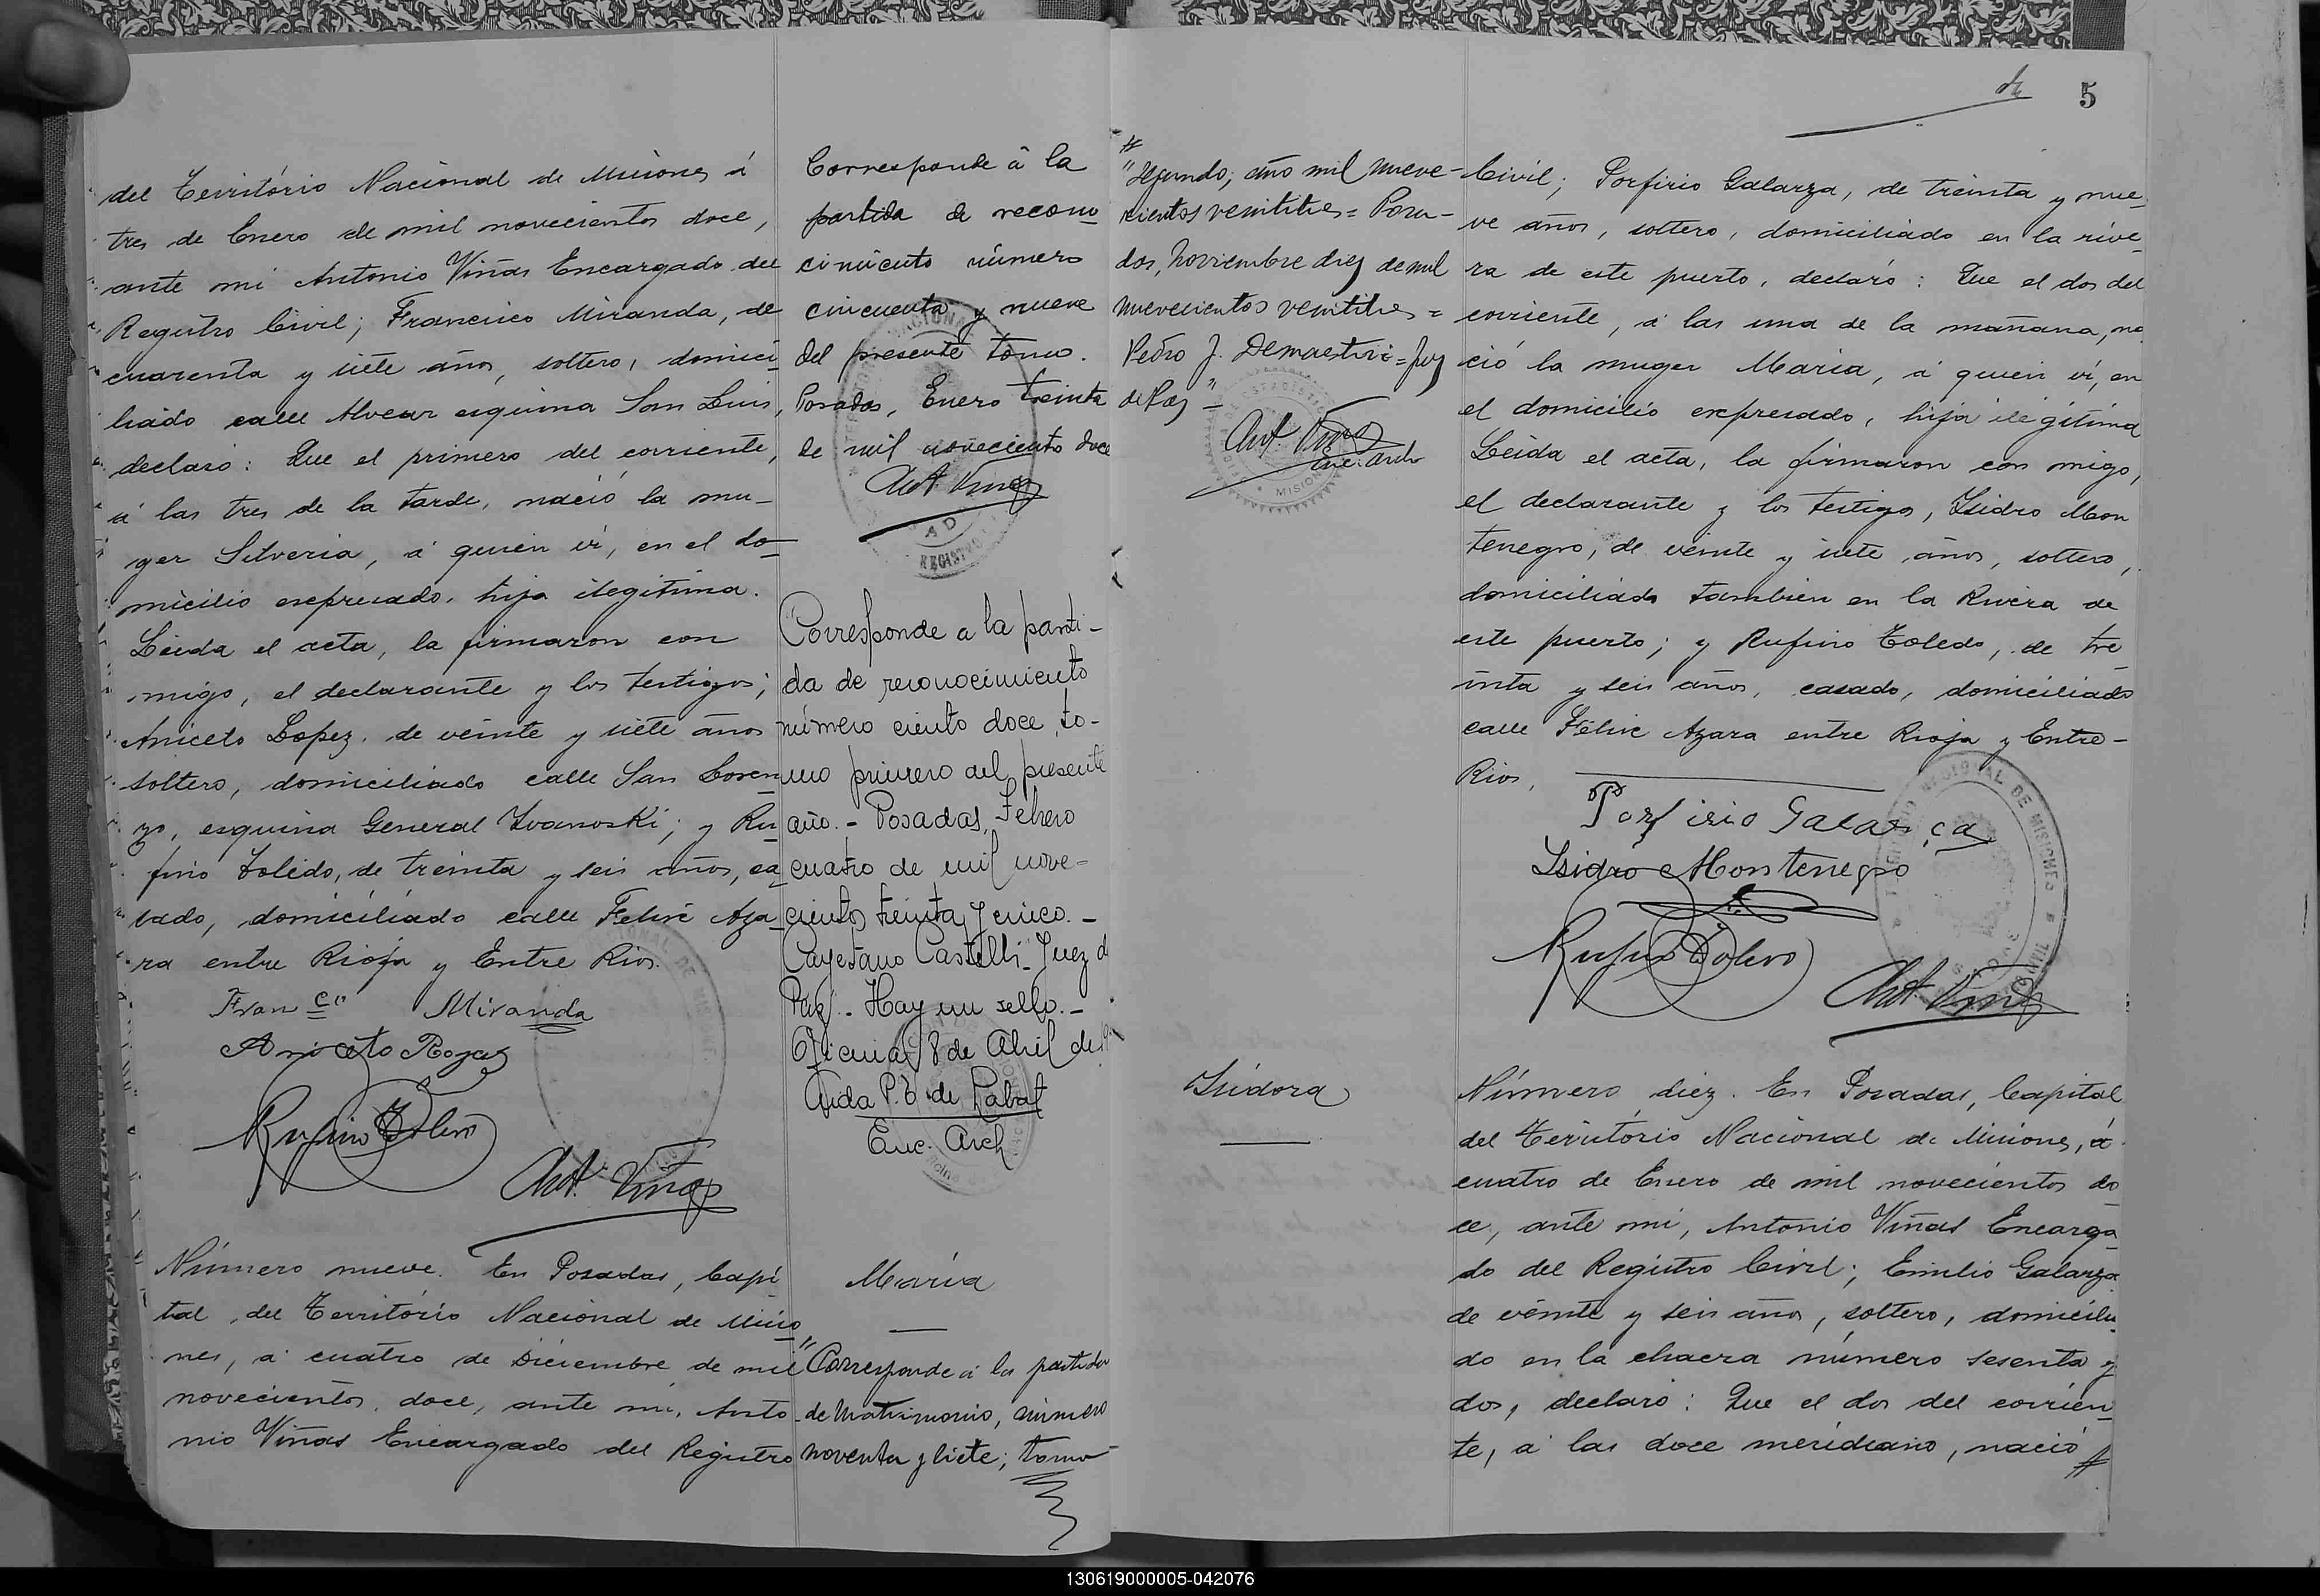 del Território Nacional de Misiones á
tres de Enero de mil novecientos doce,
ante mi Antonio Viñas Encargado del
Registro Civil; Francisco Miranda, de
cuarenta y siete años, soltero, domici
liado calle Alvear esquina San Luis,
declaró: Que el primero del corriente,
á las tres de la tarde, nació la mu-
ger Silveria, á quien ví, en el do-
micilio expresado, hija ilegitima.
Leida el acta, la firmaron con
migo, el declarante y los testigos;
Aniceto Lopez, de veinte y siete años
soltero, domiciliado calle San Loren
zo, esquina General Ivanoski; y Ru
fino Toledo, de treinta y seis años, ca
sado, domiciliado calle Felix Aza
ra entre Rioja y Entre Rios.
Fran co Miranda
Aniceto Rojas
Rufino Toledo
Ant. Viñas
Número nueve. En Posadas, Capi
tal, del Território Nacional de Misio
nes, á cuatro de Diciembre de mil
novecientos, doce, ante mi, Anto
nio Viñas Encargado del Registro
Corresponde á la
partida de recono
cimiento número
cincuenta y nueve
del presente tomo.
Posadas, Enero treinta
de mil novecientos doce
Ant. Viñas
REGISTRO
"Corresponde a la parti-
da de reconocimiento
número ciento doce, to-
mo primero del presente
año. - Posadas, Febrero
cuatro de mil nove-
cientos treinta y cinco. -
Cayetano Castelli - Juez de
Paz. - Hay un sello. -
Oficina, 8 de Abril de
Aida P. T. de Labat
Enc. Arch
María
"Corresponde á la partida
de Matrimonio, número
noventa y siete; tomo
5
"segundo, año mil nueve-
cientos veintitres = Posa-
das, Noviembre diez de mil
nuevecientos veintitres =
Pedro J. Demaestri = Juez
de Paz"
Ant. Viñas
Enc. Arch
MISIONES
Civil; Porfirio Galarza, de treinta y nue
ve años, soltero, domiciliado en la rive
ra de este puerto, declaró: Que el dos del
corriente, á las una de la mañana, na
ció la muger Maria, á quien ví, en
el domicilio expresado, hija ilegítima
Leida el acta, la firmaron con migo,
el declarante y los testigos, Isidro Mon
tenegro, de veinte y siete años, soltero,
domiciliado tambien en la Rivera de
este puerto; y Rufino Toledo, de tre
inta y seis años, casado, domiciliado
calle Felix Azara entre Rioja y Entre-
Rios,
Porfirio Galarça
Isidro Montenegro
Rufino Toledo
Ant. Viñas
Isidora
Número diez. En Posadas, Capital
del Território Nacional de Misiones, á
cuatro de Enero de mil novecientos do
ce, ante mi, Antonio Viñas Encarga
do del Registro Civil; Emilio Galarza
de veinte y seis años, soltero, domicilia
do en la chacra número sesenta y
dos, declaró: Que el dos del corrien
te, á las doce meridiano, nació
130619000005-042076